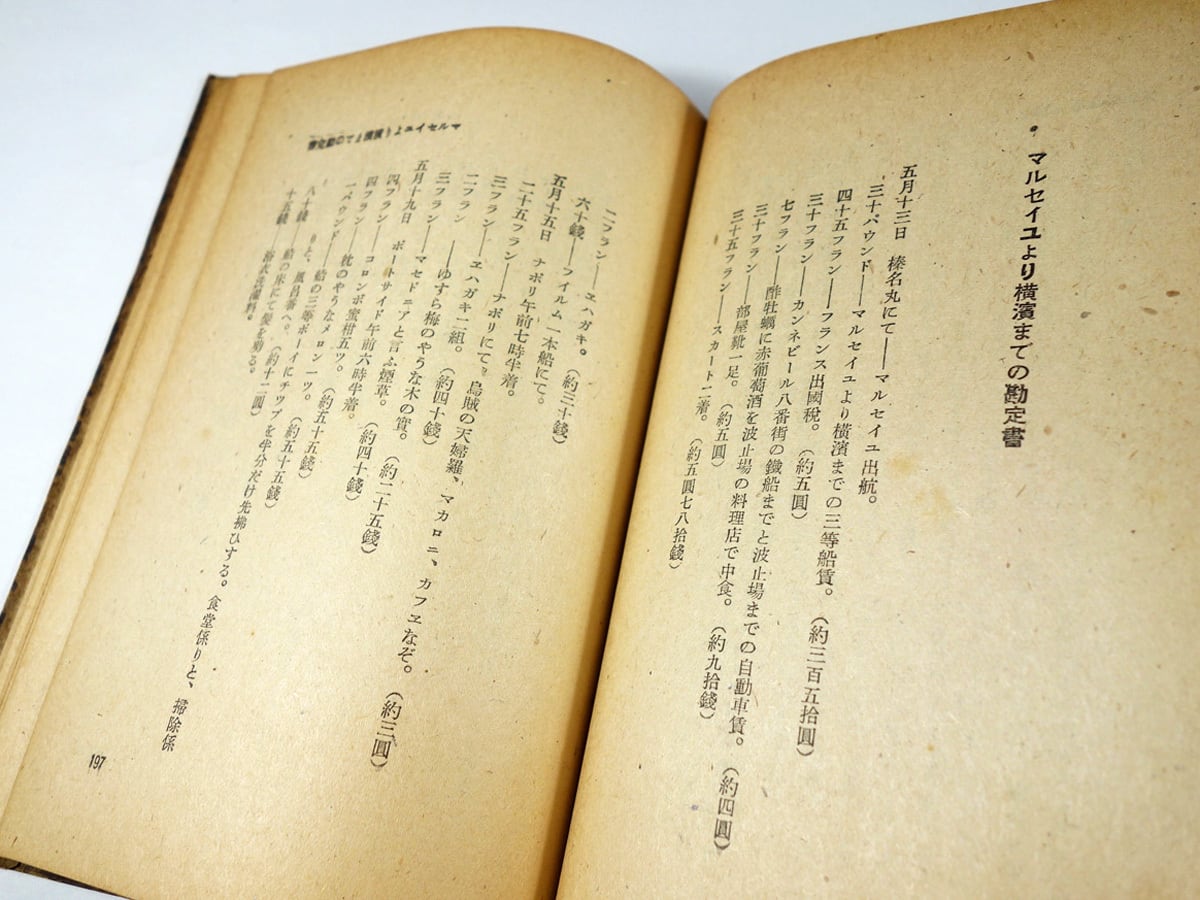 。マルセイユより橫濱までの勘定書
五月十三日　榛名丸にて――マルセイユ出航。
三十パウンド――マルセイユより橫濱までの三等船賃。（約三百五拾圓）
四十五フラン――フランス出國稅。（約五圓）
三十フラン――カンネビール八番街の鐵船までと波止場までの自動車賃。（約四圓）
七フラン――酢牡蠣に赤葡萄酒を波止場の料理店で中食。（約九拾錢）
三十フラン――部屋靴一足。（約五圓）
三十五フラン――スカート二着。（約五圓七八拾錢）
マルセイユより橫濱までの勘定書
二フラン――ヱハガキ。（約三十錢）
六十錢――フイルム一本船にて。
五月十五日　ナポリ午前七時半着。
二十五フラン――ナポリにて、烏賊の天婦羅、マカロニ、カフヱなぞ。（約三圓）
三フラン――ヱハガキ二組。（約四十錢）
二フラン――ゆすら梅のやうな木の實。（約二十五錢）
三フラン――マセドニアと言ふ煙草。（約四十錢）
五月十九日　ポートサイド午前六時半着。
四フラン――コロンボ蜜柑五ツ。（約五十五錢）
四フラン――枕のやうなメロン一ツ。（約五十五錢）
一パウンド――船の三等ボーイにチツプを半分だけ先拂ひする。食堂係りと、掃除係
りと、風呂番へ。（約十二圓）
八十錢――船の床にて髮を剪る。
十五錢――浴衣洗濯料。
197